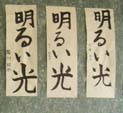 明るい光
明るい光
明るい光